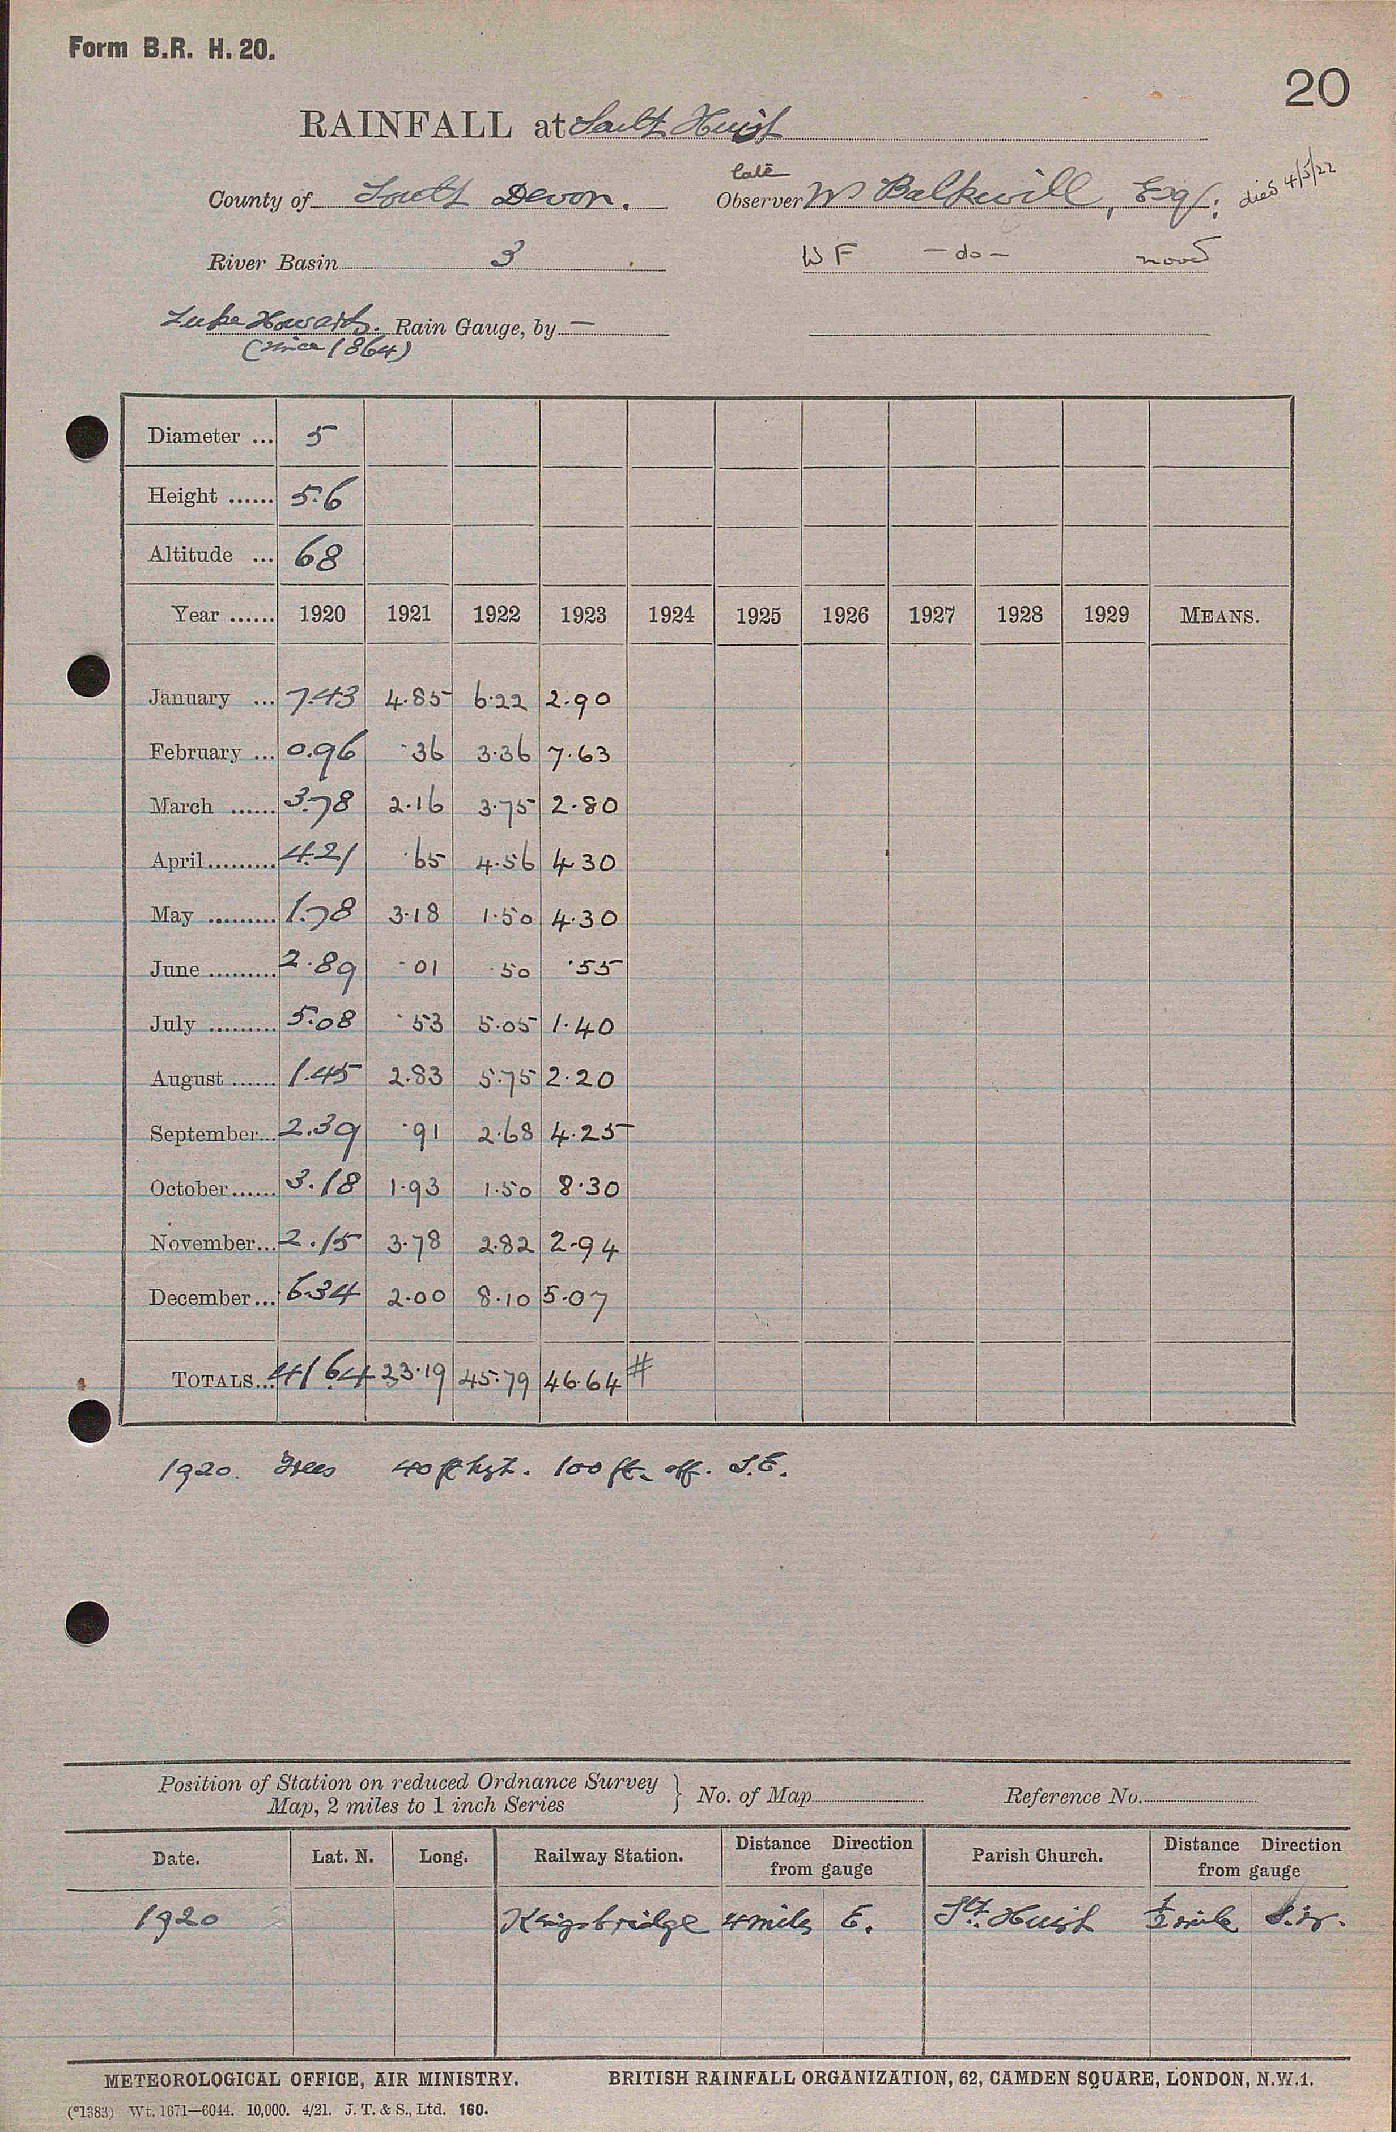 Form B.R. H. 20.
20
RAINFALL at South Huish
late
County of South Devon. Observer W Balkwill, Esq. died 4/5/22
River Basin 3 W F - do - 
Luke Howard. Rain Gauge, by —
(since 1864)
Diameter ... 5
Height ...... 5.6
Altitude ... 68
Year ...... 1920 1921 1922 1923 1924 1925 1926 1927 1928 1929 MEANS.
January ... 7.43 4.85 6.22 2.90
February ... 0.96 .36 3.36 7.63
March ...... 3.78 2.16 3.75 2.80
April ......... 4.21 .65 4.56 4 30
May ......... 1.78 3.18 1.50 4.30
June ......... 2.89 .01 .50 .55
July ......... 5.08 .53 5.05 1.40
August ...... 1.45 2.83 5.75 2.20
September... 2.39 .91 2.68 4.25
October...... 3.18 1.93 1.50 8.30
November... 2.15 3.78 2.82 2.94
December... 6.34 2.00 8.10 5.07
TOTALS... 41.64 23.19 45.79 46.64 #
1920. Trees 40 ft hgt. 100 ft. off. S.E.
Position of Station on reduced Ordnance Survey } No. of Map Reference No.
Map, 2 miles to 1 inch Series
Date. Lat. N. Long. Railway Station. Distance Direction from gauge Parish Church. Distance Direction from gauge
1920 Kingsbridge 4 miles E. Sth. Huish ½ mile S.W.
METEOROLOGICAL OFFICE, AIR MINISTRY. BRITISH RAINFALL ORGANIZATION, 62, CAMDEN SQUARE, LONDON, N.W.1.
(*1383) Wt. 1671—6044. 10,000. 4/21. J. T. & S., Ltd. 160.